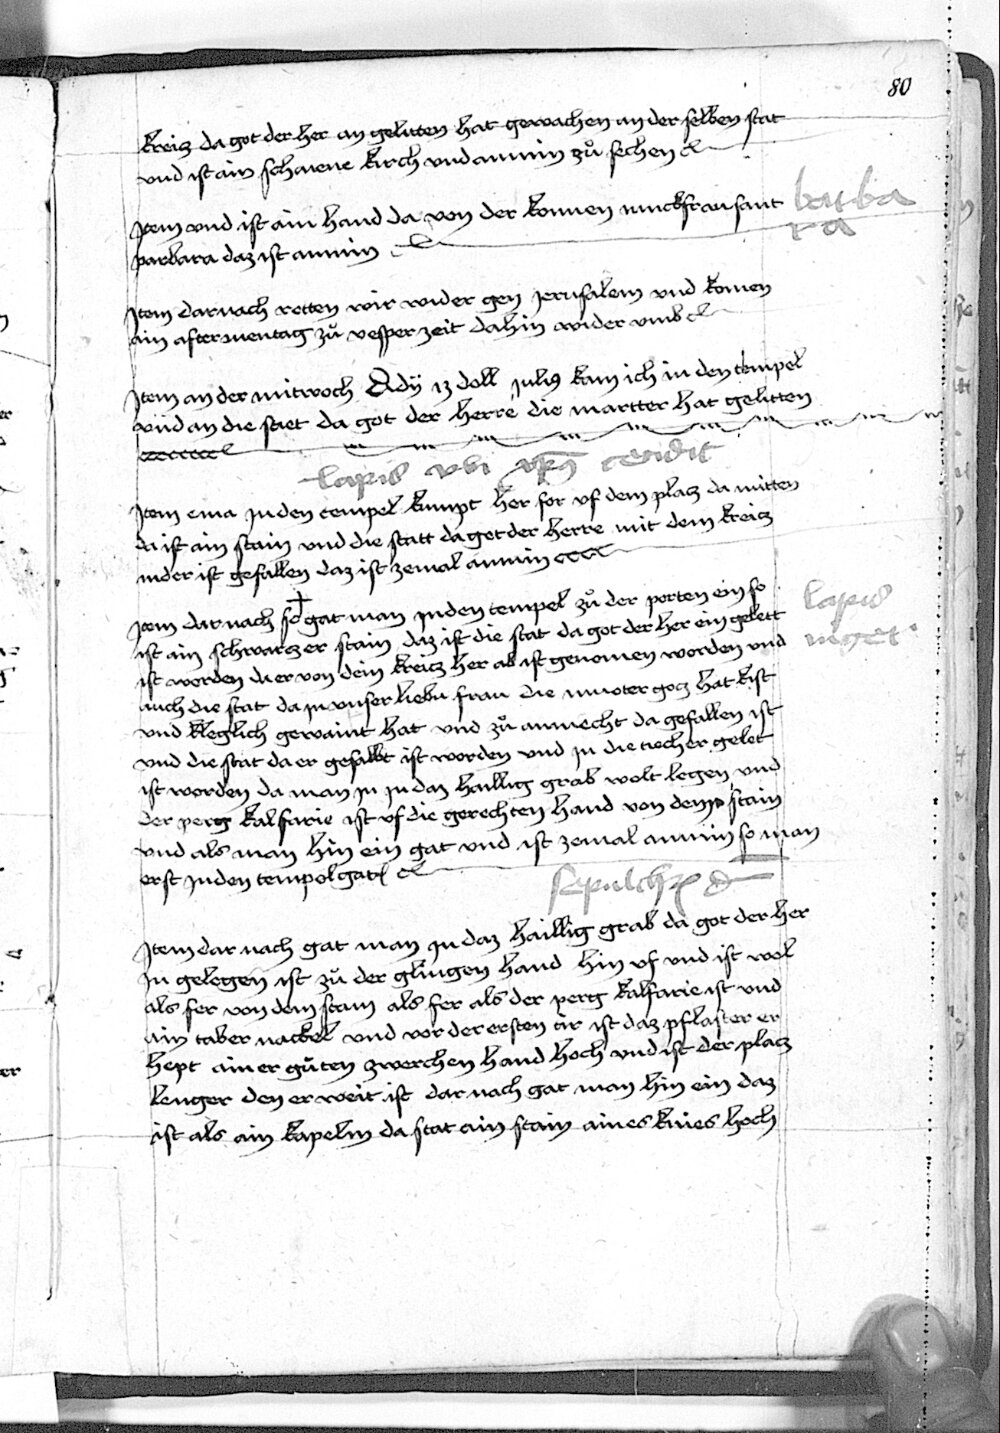 80
kreicz da got der her an gelitten hat gewachen an der selben stat
und ist ain schoene kirch und anmin zů sechen
Jtem und ist ain hand da von der konnen junckfrau sant
barbara
parbara daz ist anmin
Jtem darnach retten wir wider gen jerusalem und komen
ain aftermentag zů vesper zeit dahin wider umb
Jtem an der mitwoch Adÿ 13 doll julij kam ich in den tempel
und an die stet da got der herre die martter hat gelitten
lapis ubi xps cecidit
Jtem e ma in den tempel kumpt her for uf dem placz da mitten
da ist ain stain und die statt da got der herre mit dem kreicz
nider ist gefallen daz ist zemal anmin
Jtem dar nach so gat man in den tempel zů der porten ein so
lapis
ist ain schwarczer stain daz ist die stat da got der her ein gelett
niger
ist worden da er von dem kreicz her ab ist genomen worden und
auch die stat da in unser liebu frau die muoter gocz hat kist
und kleglich gewaint hat und zů anmecht da gefallen ist
und die stat da er gesalbt ist worden und in die tuocher gelet
ist worden da man in in daz haillig grab wolt legen und
der perg kalfarie ist uf die gerechten hand von dem stain
und als man hin ein gat und ist zemal anmin so man
erst in den tempel gat
sepulchrum d
Jtem dar nach gat man in daz haillig grab da got der her
in gelegen ist zů der glingen hand hin uf und ist wol
als fer von dem stain als fer als der perg kalfarie ist und
ain taber nackel und vor der ersten tir ist daz pflaster er
hept ainer gůten zwerchen hand hoch und ist der placz
lenger den er weit ist dar nach gat man hin ein daz
ist als ain kapelin da stat ain stain aines knies hoch